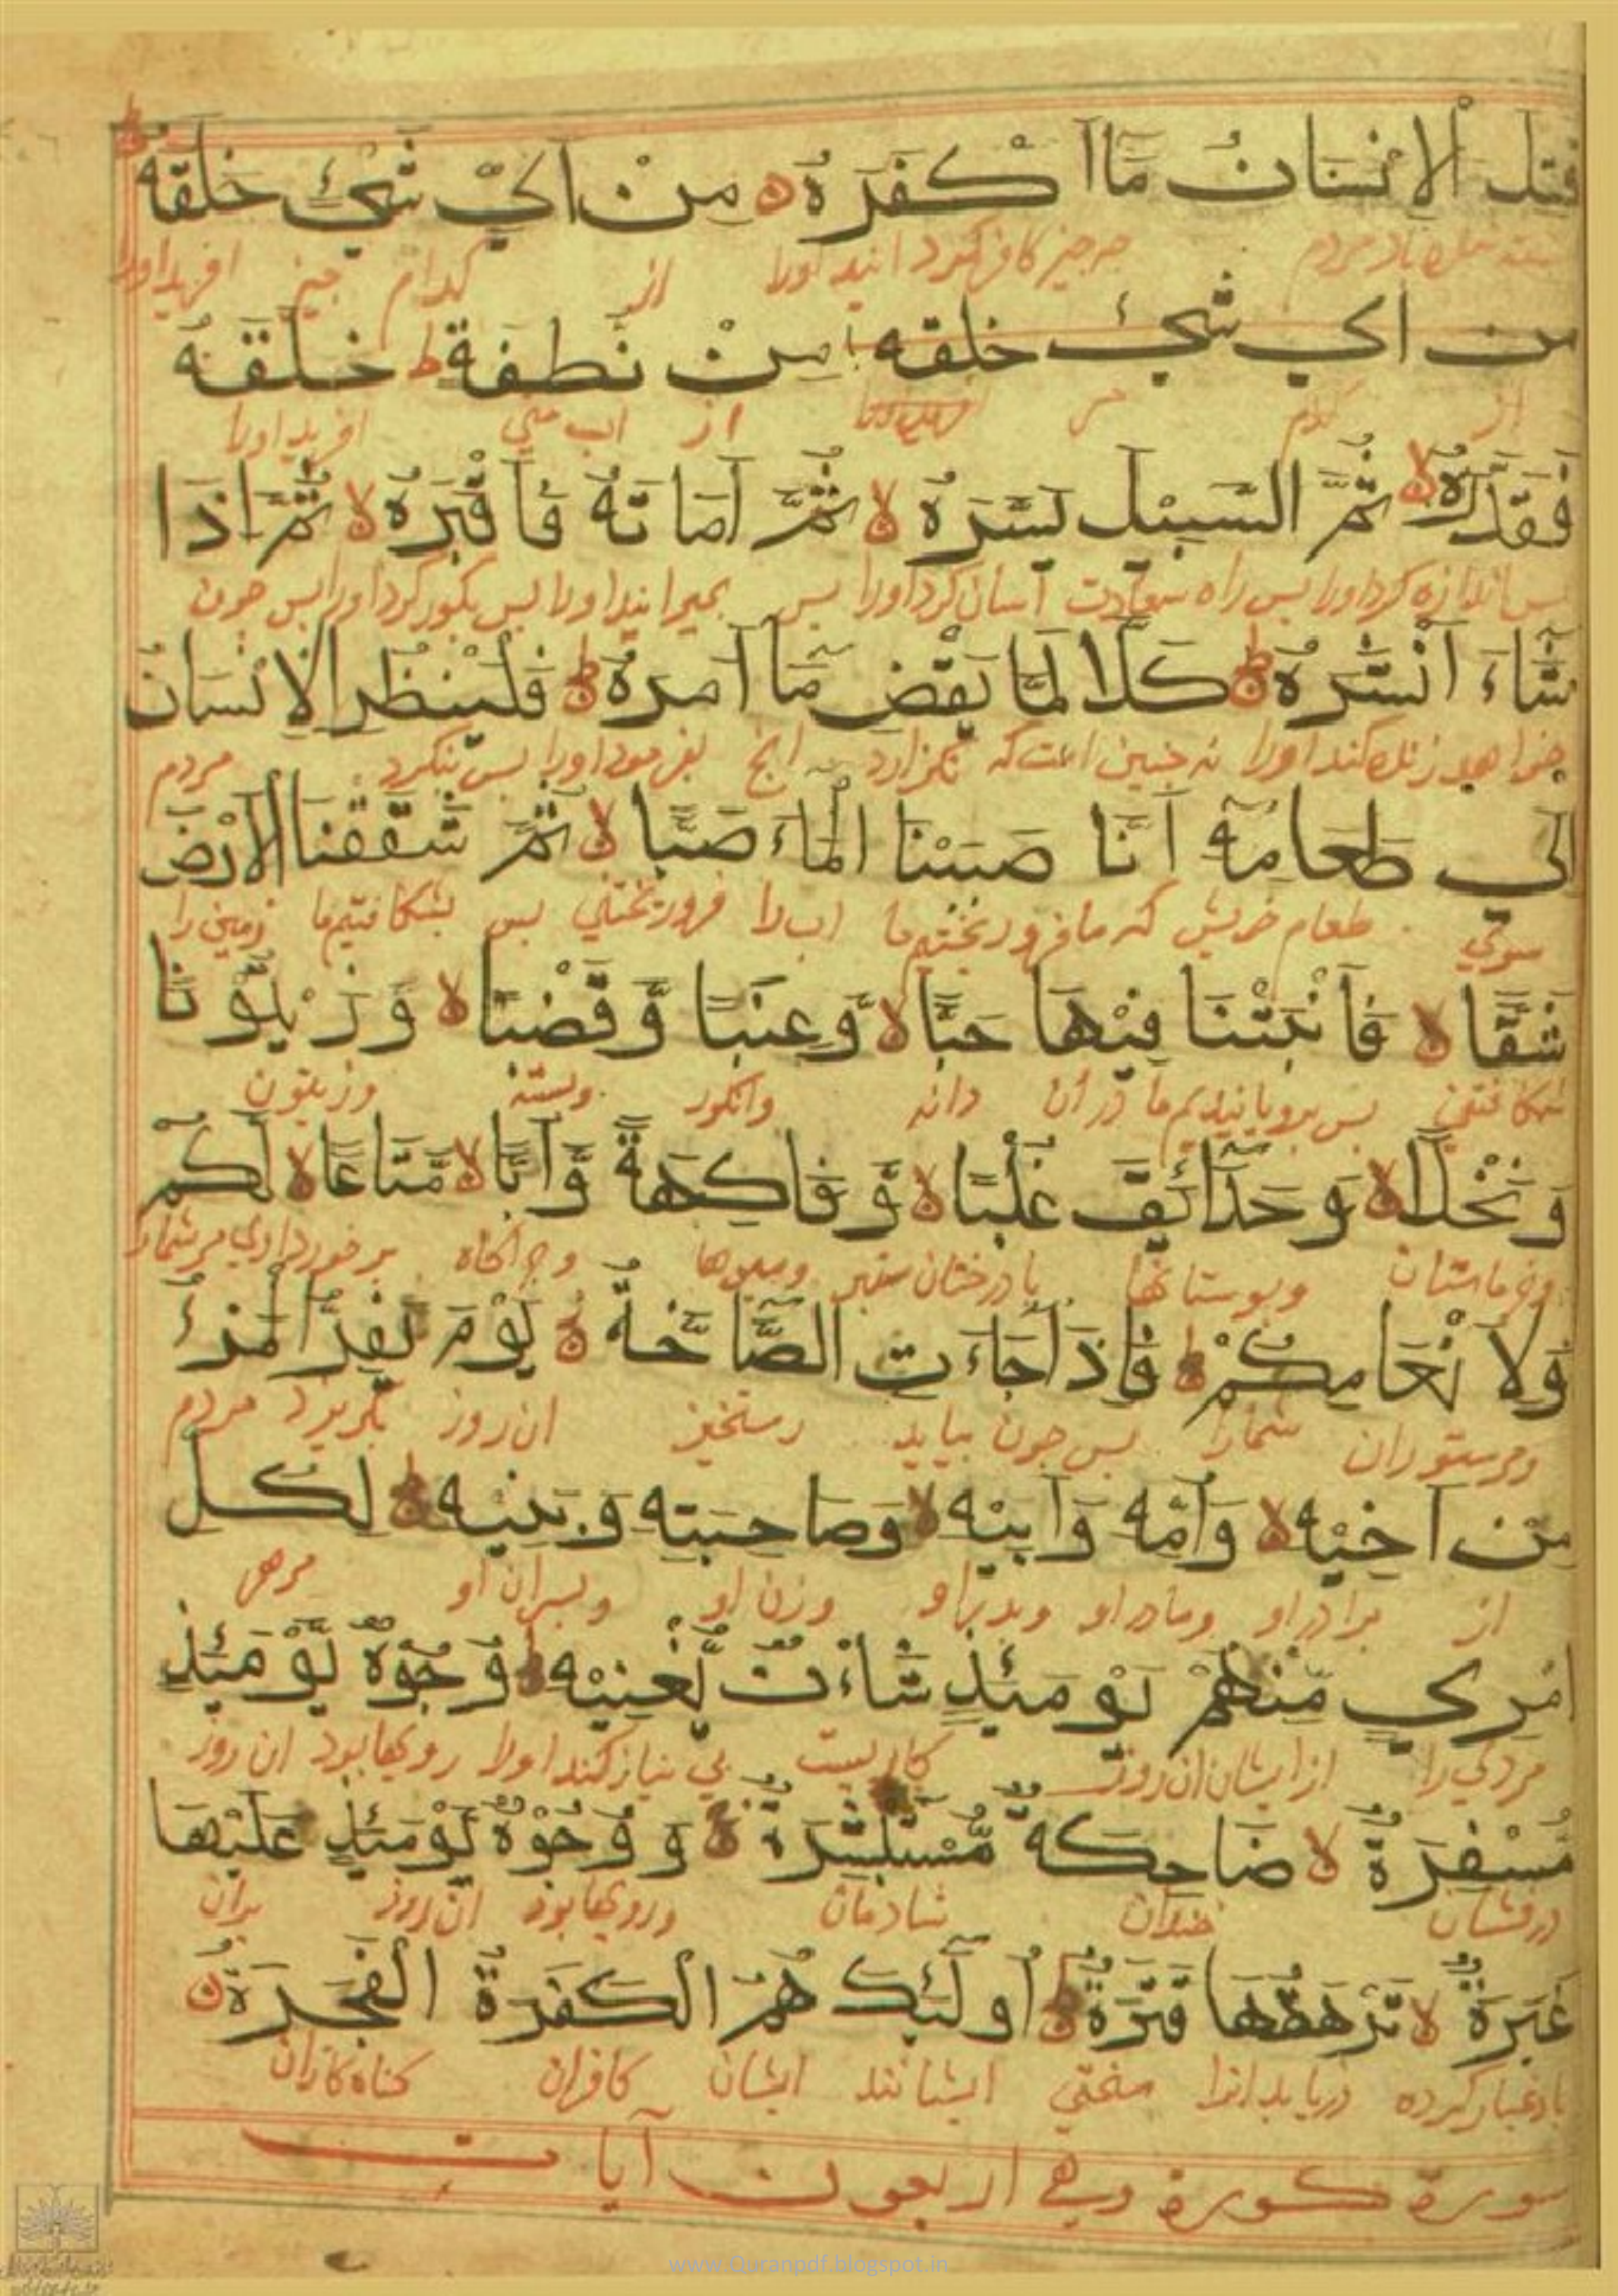 قتل الْاِنْسَانُ مَاا كْفَرَهُ ه مِنْ اَيِّ شَيْءٍ خَلَقَهُ ط
مردم چه چیز کافر کردانید اورا از کدام چیز افریداورا
من اي شيء خلقه مِنْ نُطفة ط خَلَقَهُ
از کدام از اب منی افریداورا
فَقَدَّرَهُ لا ثُمَّ السَّبِيْلَ يَسَّرَهُ لا ثُمَّ اَمَاتَهُ فَاَقْبَرَهُ لا ثُمَّ اِذَا
بس اندازه کرداورا بس راه سعادت اسان کرداورا بس بمیرانیداورا بس بکور کرداورا بس جون
شَاءَ اَنْشَرَهُ ط كَلَّا لَمَّا يَقْضِ مَا اَمَرَهُ ط فَلْيَنْظُرِ الْاِنْسَانُ
خواهد زنده کند اورا نه جنین است که نکزارد انچ بفرموداورا بس بنکرد مردم
اِلَي طَعَامِهِ اَنَّا صَبَبْنَا الْمَاءَ صَبًّا لا ثُمَّ شَقَقْنَا الْاَرْضَ
سوی طعام خویش که ما فرو ریختیم ما اب را فرو ریختنی بس بشکافتیم ما زمین را
شَقًّا لا فَاَنْبَتْنَا فِيْهَا حَبًّا لا وَّعِنَبًا وَّقَضْبًا لا وَزَيْتُوْنًا
شکافتنی بس برویانیدیم ما در ان دانه وانکور وزیتون
وَنَخْلًا لا وَحَدَائِقَ غُلْبًا لا وَّفَاكِهَةً وَّاَبًّا لا مَّتَاعًا لا لَكُمْ
وخرماستان وبوستانها با درختان ستبر ومیوها وچراکاه برخورداری مر شمارا
وَلِاَنْعَامِكُمْ ط فَاِذَا جَاءَتِ الصَّاخَّةُ لا يَوْمَ يَفِرُّ الْمَرْءُ
ومر ستوران شمارا بس جون بیاید رستخیز ان روز بکریزد مردم
مِنْ اَخِيْهِ لا وَاُمِّهِ وَاَبِيْهِ لا وَصَاحِبَتِهِ وَبَنِيْهِ ط لِكُلِّ
از برادر او ومادر او وبدر او وزن او وبسران او مرهر
امْرِيٍ مِّنْهُمْ يَوْمَئِذٍ شَاْنٌ يُّغْنِيْهِ ط وُجُوْهٌ يَّوْمَئِذٍ
مردی را از ایشان ان روز کاریست بی نیاز کند اورا رویها بود ان روز
مُّسْفِرَةٌ لا ضَاحِكَةٌ مُّسْتَبْشِرَةٌ ج وَوُجُوْهٌ يَوْمَئِذٍ عَلَيْهَا
درفشان خندان شادمان ورویها بود ان روز بران
غَبَرَةٌ لا تَرْهَقُهَا قَتَرَةٌ ط اُولٰئِكَ هُمُ الْكَفَرَةُ الْفَجَرَةُ ه
باد غبار کرده دریابد انرا سختی ایشانند ایشان کافران کناه کاران
سورة كورة وهي اربعون آيات
www.Quranpdf.blogspot.in